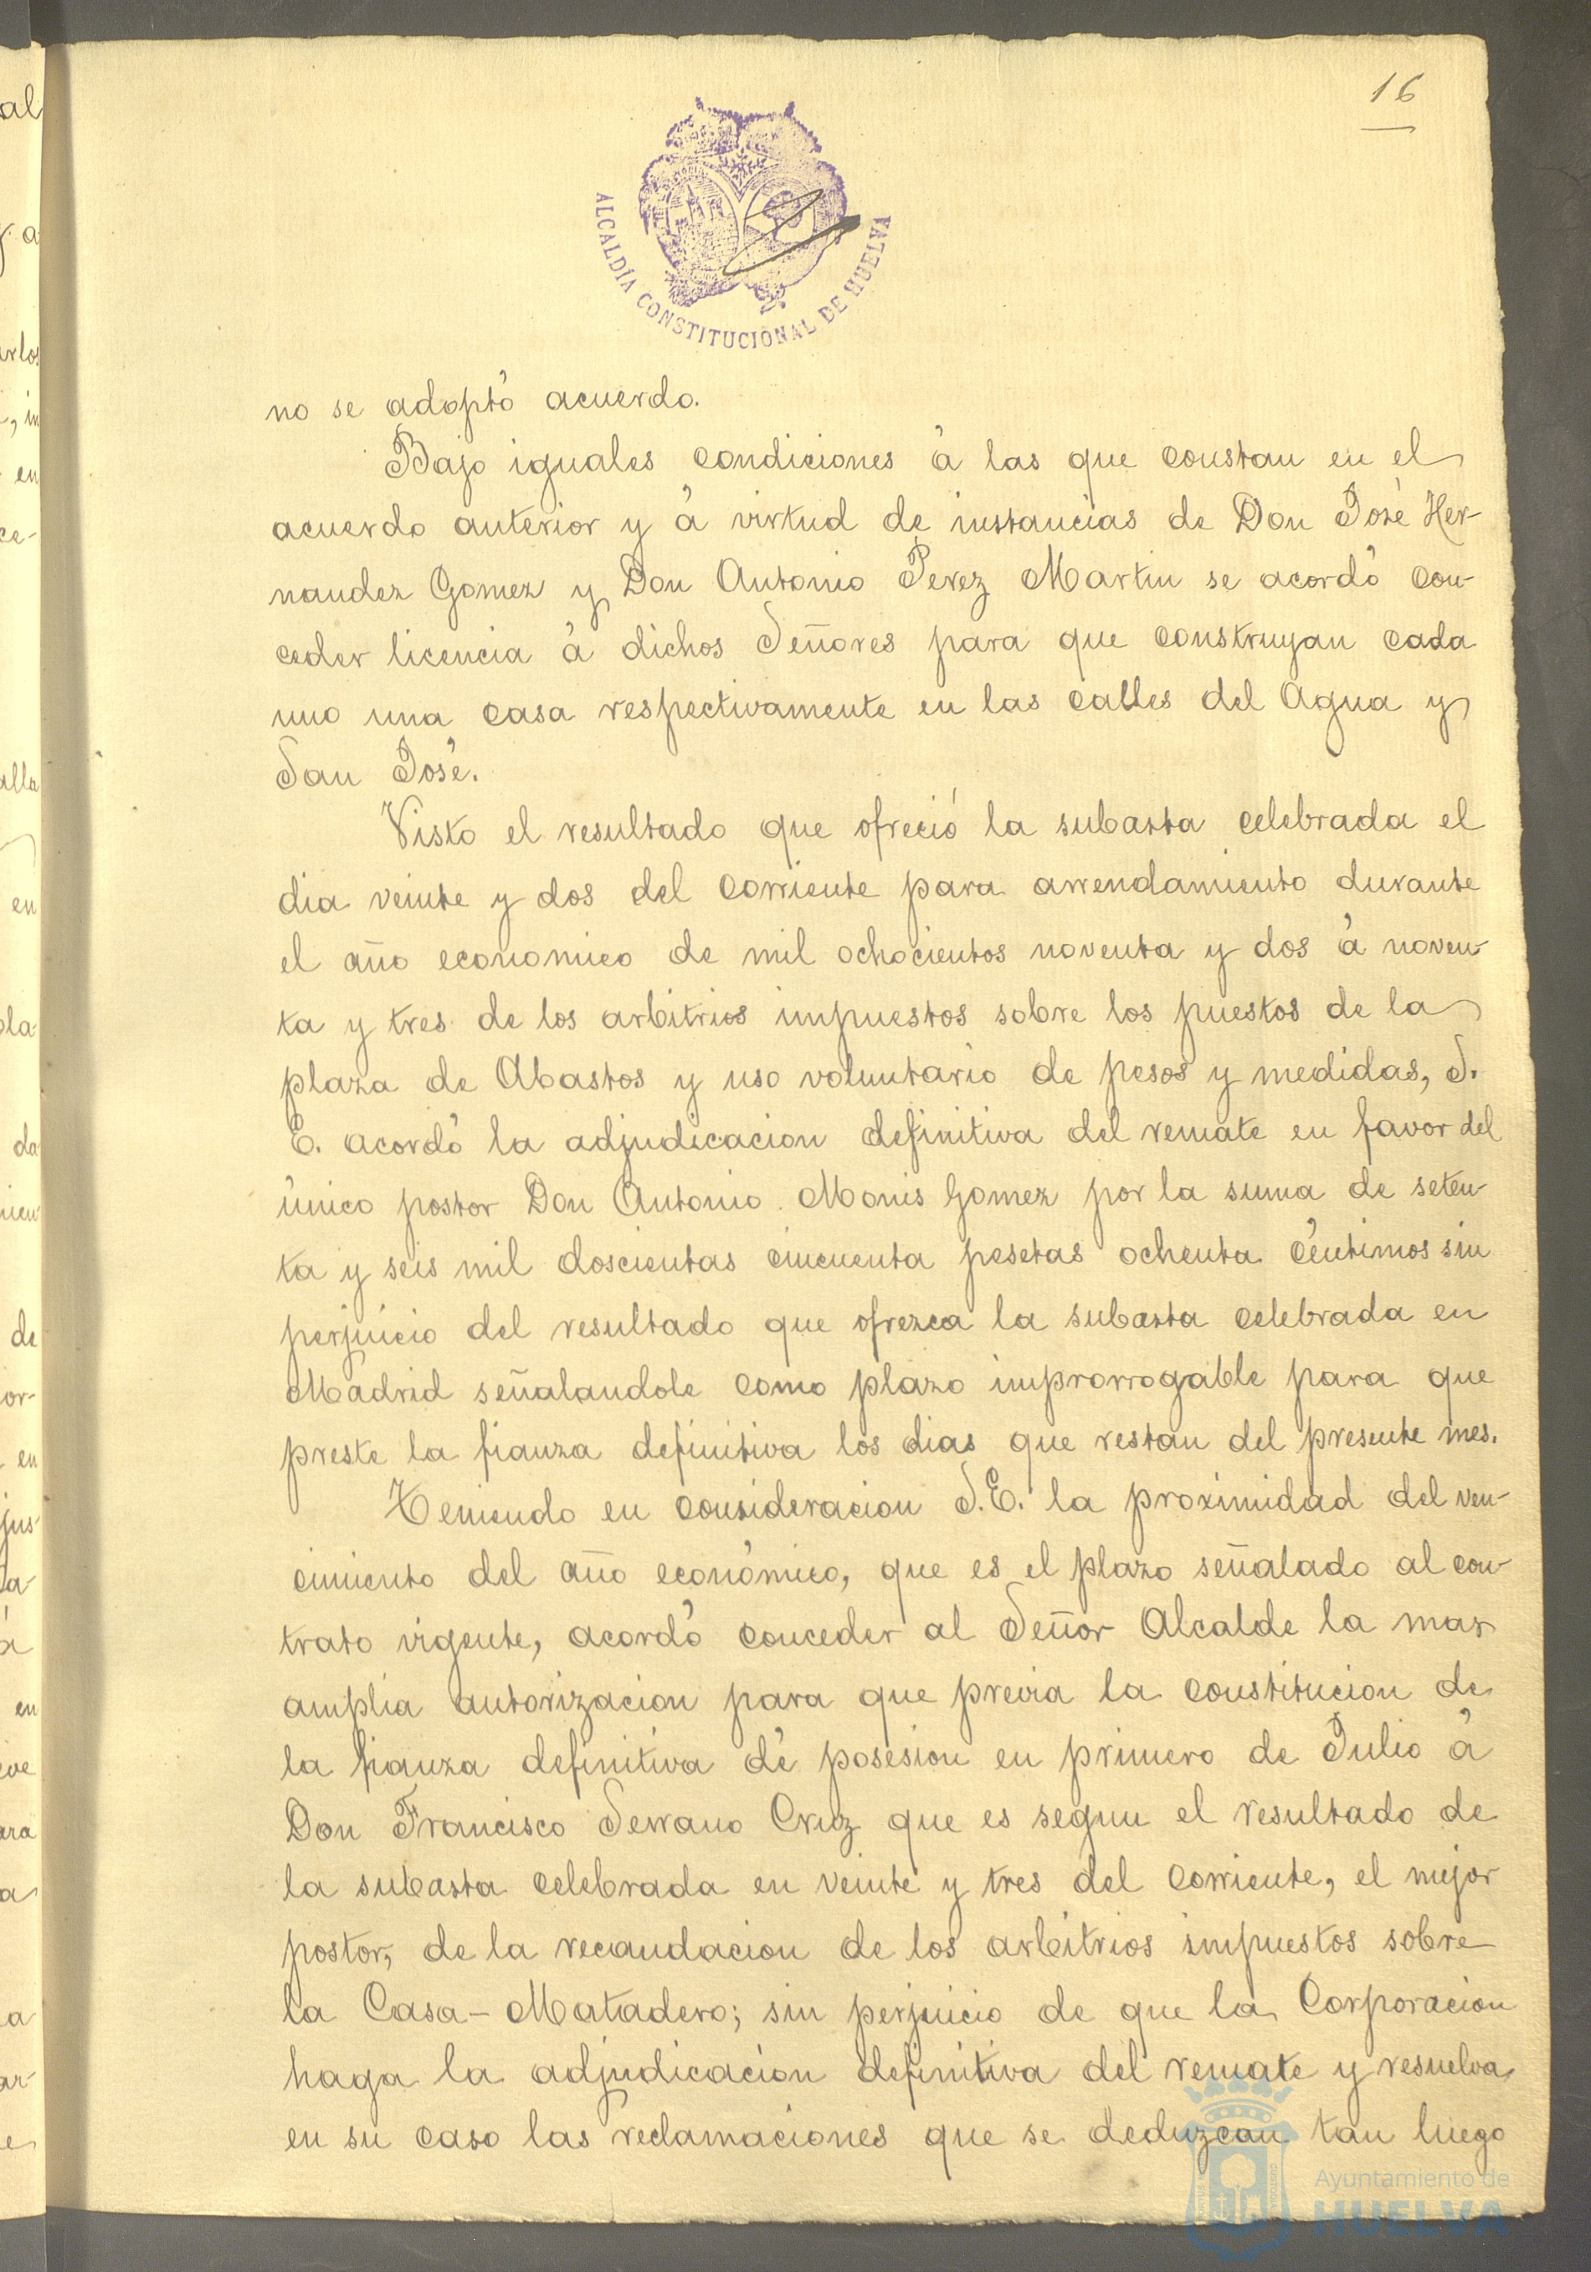 16
ALCALDÍA CONSTITUCIONAL DE HUELVA
no se adoptó acuerdo.
Bajo iguales condiciones á las que constan en el
acuerdo anterior y á virtud de instancias de Don José Her-
nandez Gomez y Don Antonio Perez Martin se acordó con-
ceder licencia á dichos Señores para que construyan cada
uno una casa respectivamente en las calles del Agua y
San José.
Visto el resultado que ofreció la subasta celebrada el
dia veinte y dos del corriente para arrendamiento durante
el año economico de mil ochocientos noventa y dos á noven-
ta y tres de los arbitrios impuestos sobre los puestos de la
plaza de Abastos y uso voluntario de pesos y medidas, S.
E. acordó la adjudicacion definitiva del remate en favor del
único postor Don Antonio Monis Gomez por la suma de seten-
ta y seis mil doscientas cincuenta pesetas ochenta céntimos sin
perjuicio del resultado que ofrezca la subasta celebrada en
Madrid señalandole como plazo improrrogable para que
preste la fianza definitiva los dias que restan del presente mes.
Teniendo en consideracion S.E. la proximidad del ven-
cimiento del año económico, que es el plazo señalado al con-
trato vigente, acordó conceder al Señor Alcalde la mas
amplia autorizacion para que previa la constitucion de
la fianza definitiva dé posesion en primero de Julio á
Don Francisco Serrano Cruz que es segun el resultado de
la subasta celebrada en veinte y tres del corriente, el mejor
postor, de la recaudacion de los arbitrios impuestos sobre
la Casa-Matadero; sin perjuicio de que la Corporacion
haga la adjudicacion definitiva del remate y resuelva
en su caso las reclamaciones que se deduzcan tan luego
Ayuntamiento de
HUELVA